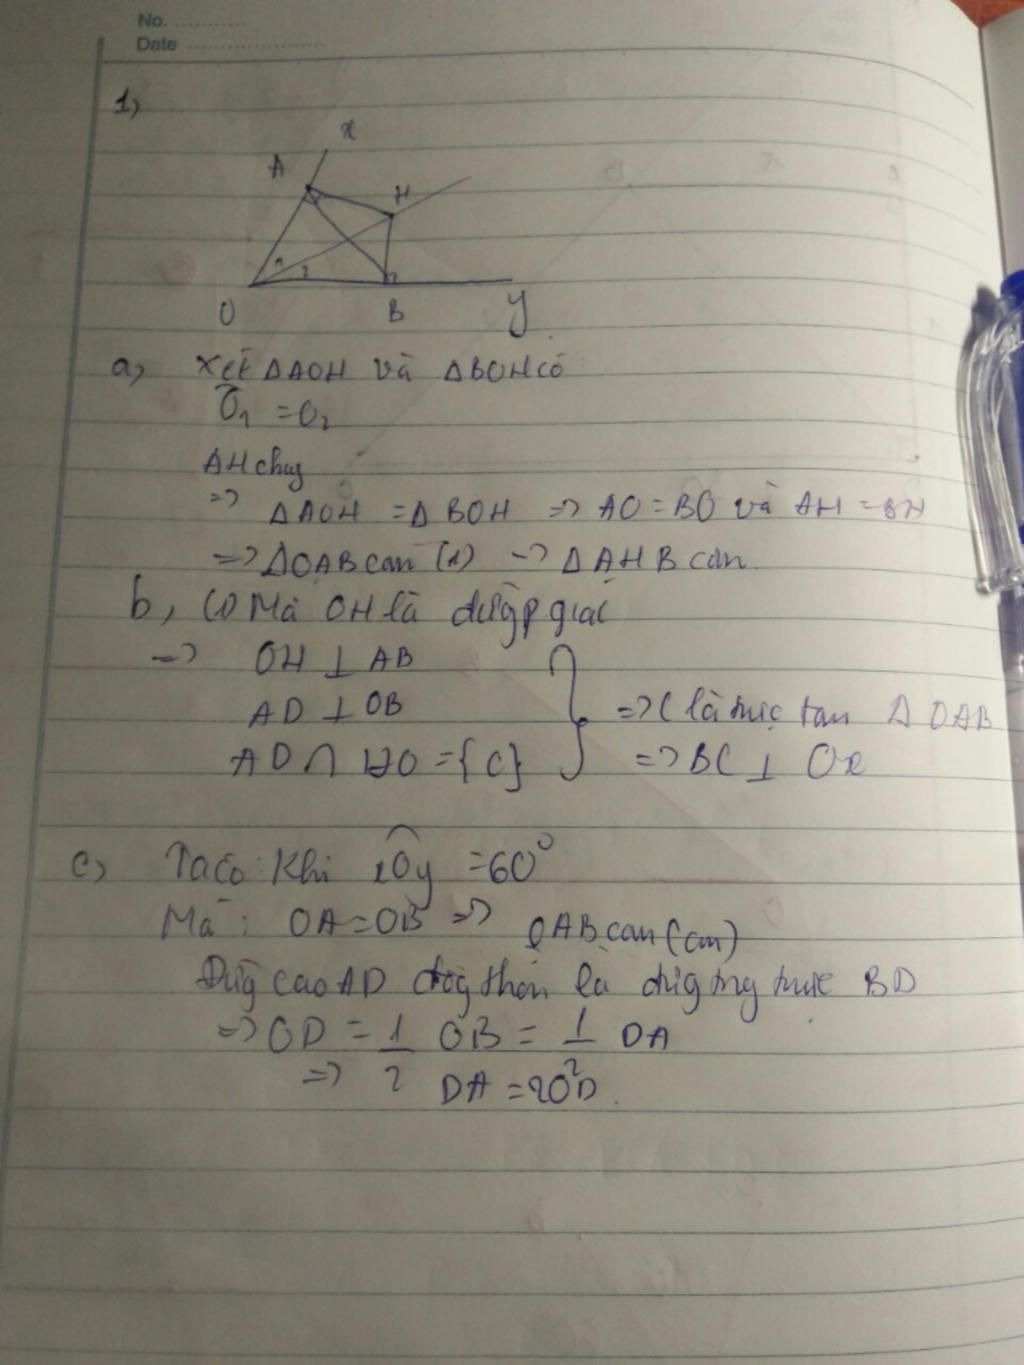 No. ...........
Date ......................
1)
x
A
H
1
2
O
B
y
a) Xét ΔAOH và ΔBOH có
Ô1 = O2
AH chung
=> ΔAOH = ΔBOH => AO = BO và AH = BH
=> ΔOAB cân (1) -> ΔAHB cân.
b, (1) Mà OH là đường p giác
=> OH ⊥ AB
AD ⊥ OB => C là trực tâm Δ OAB
AD ∩ HO = {C} => BC ⊥ Ox
c) Ta có: Khi xOy = 60°
Mà: OA = OB => OAB cân (cm)
Đường cao AD đồng thời là đường trung trực BD
=> OD = 1/2 OB = 1/2 DA
=> DA = 2OD.